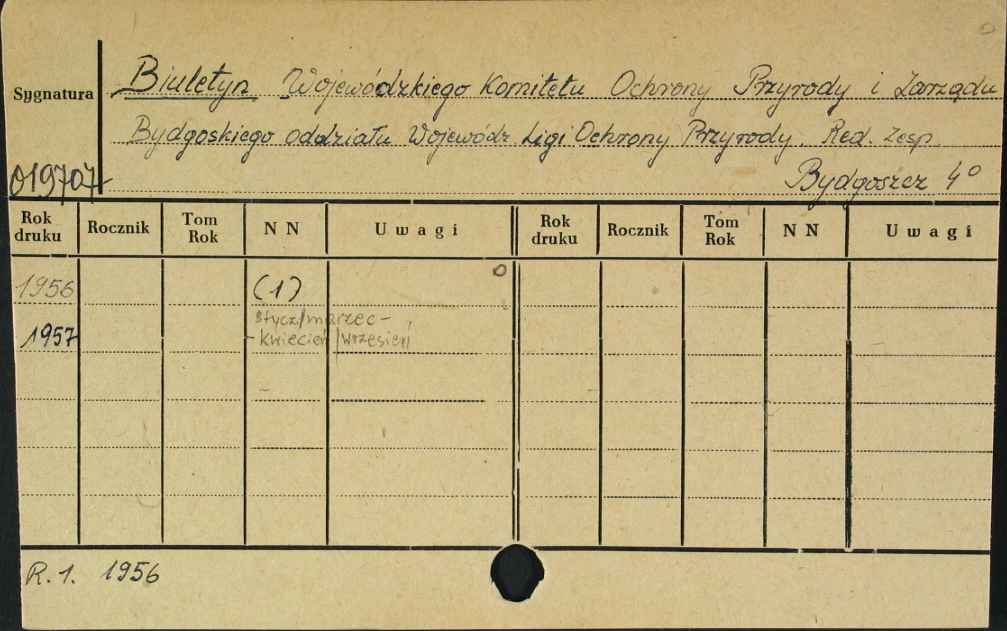 Sygnatura
Biuletyn Wojewódzkiego Komitetu Ochrony Przyrody i Zarządu
Bydgoskiego oddziału Wojewódz. Ligi Ochrony Przyrody. Red. Zesp.
019707
Bydgoszcz 4°
Rok druku Rocznik Tom Rok NN Uwagi Rok druku Rocznik Tom Rok NN Uwagi
1956 (1)
1957 stycz/marzec-
-kwiecień/wrzesień
R.1. 1956